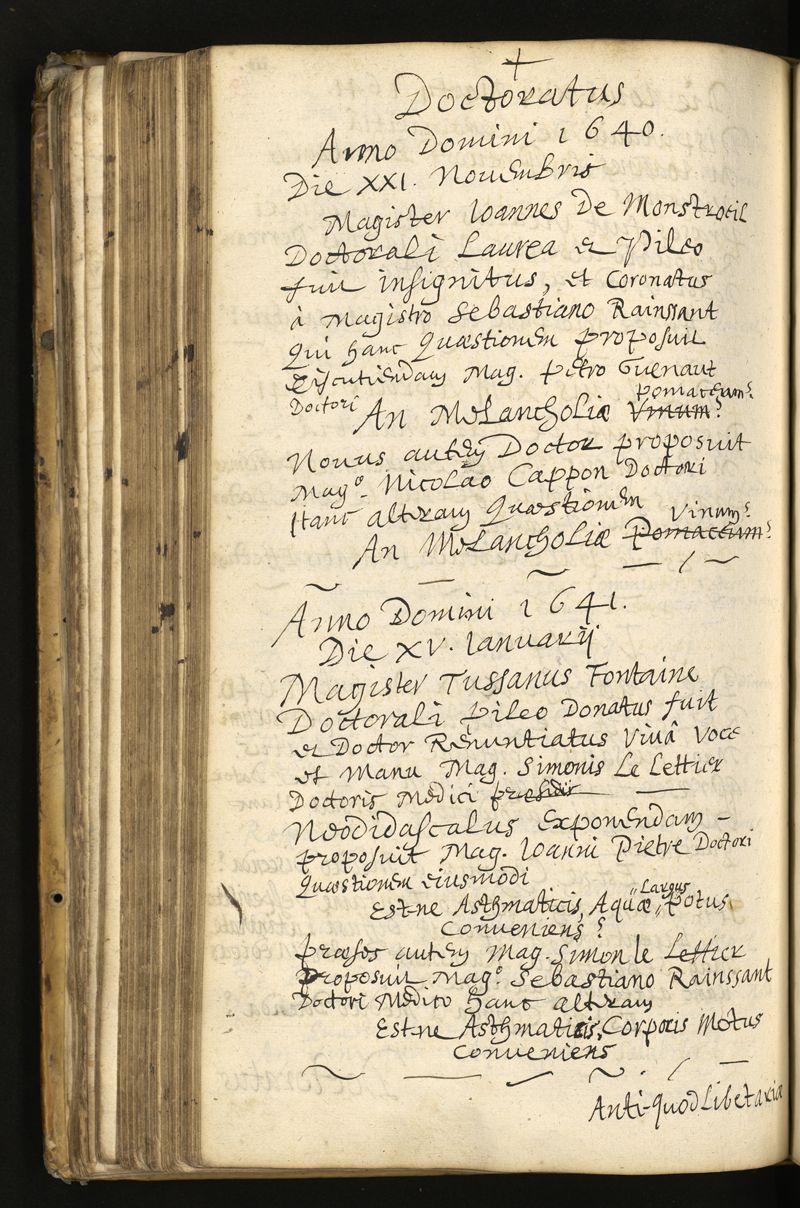 +
Doctoratus
Anno Domini 1640.
Die XXI. Novembris
Magister Ioannes De Monstrœil
Doctorali Laurea et Pileo
fuit insignitus, et Coronatus
à Magistro Sebastiano Rainssant
Qui hanc Quæstionem proposuit
Discutiendam Mag. Petro Guenaut
Doctori
pomaceum?
An Melancholiæ Vinum?
Novus autem Doctor proposuit
Mag°. Nicolao Cappon Doctori
Hanc alteram Quæstionem
Vinum?
An Melancholiæ Pomaceum?
Anno Domini 1641.
Die XV. Ianuarij
Magister Tussanus Fontaine
Doctorali pileo Donatus fuit
et Doctor Renuntiatus Vivâ Voce
et Manu Mag. Simonis Le Lettier
Doctoris Medici præsidis
Neodidascalus Exponendam -
proposuit Mag. Ioanni Pietre Doctori
Quæstionem eiusmodi
Largus
Est-ne Asthmaticis, Aquæ, Potus,
Conveniens?
præses autem Mag. Simon le Lettier
Proposuit Mag°. Sebastiano Rainssant
Doctori Medico Hanc alteram
Est-ne Asthmaticis, Corporis Motus
Conveniens
Anti-quodlibetariæ